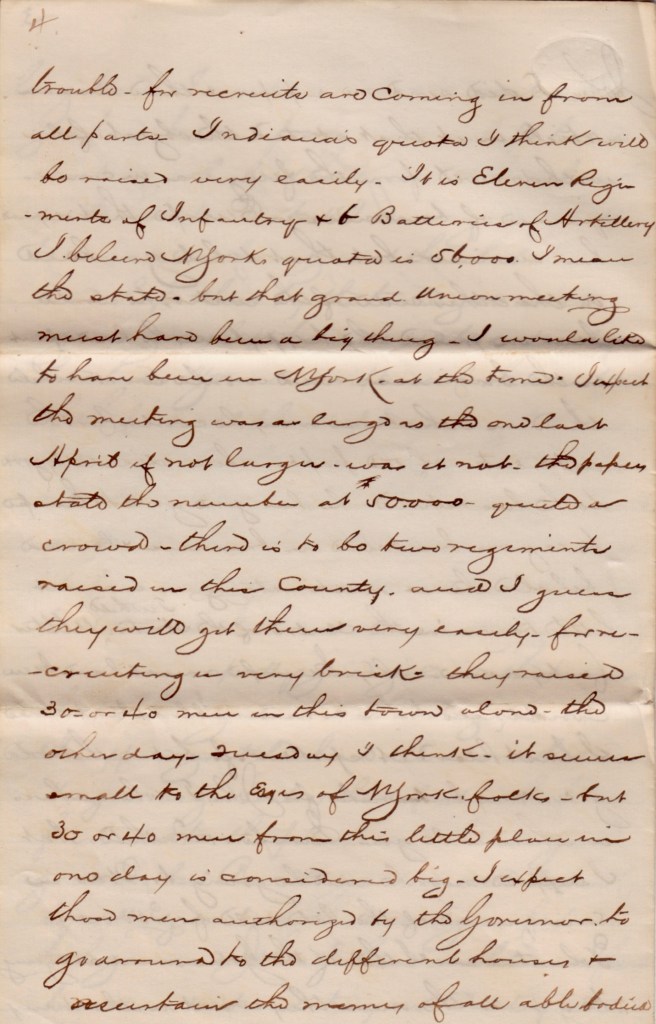 4
trouble - for recruits are coming in from
all parts - Indiana's quota I think will
be raised very easily - It is Eleven Regi-
-ments of Infantry & 6 Batteries of Artillery
I believe N York's quota is 56,000. I mean
the state - but that grand Union meeting
must have been a big thing - I would like
to have been in N York - at the time. I expect
the meeting was as large as the one last
April if not larger - was it not - the papers
state the number at 50.000 - quite a
crowd - there is to be two regiments
raised in this County. and I guess
they will get them very easily - for re-
-cruiting is very brisk - they raised
30 or 40 men in this town alone - the
other day - Tuesday I think - it seems
small to the Eyes of N York folks - but
30 or 40 men from this little place in
one day is considered big - I expect
those men authorized by the Governor. to
go around to the different houses &
ascertain the names of all able bodied